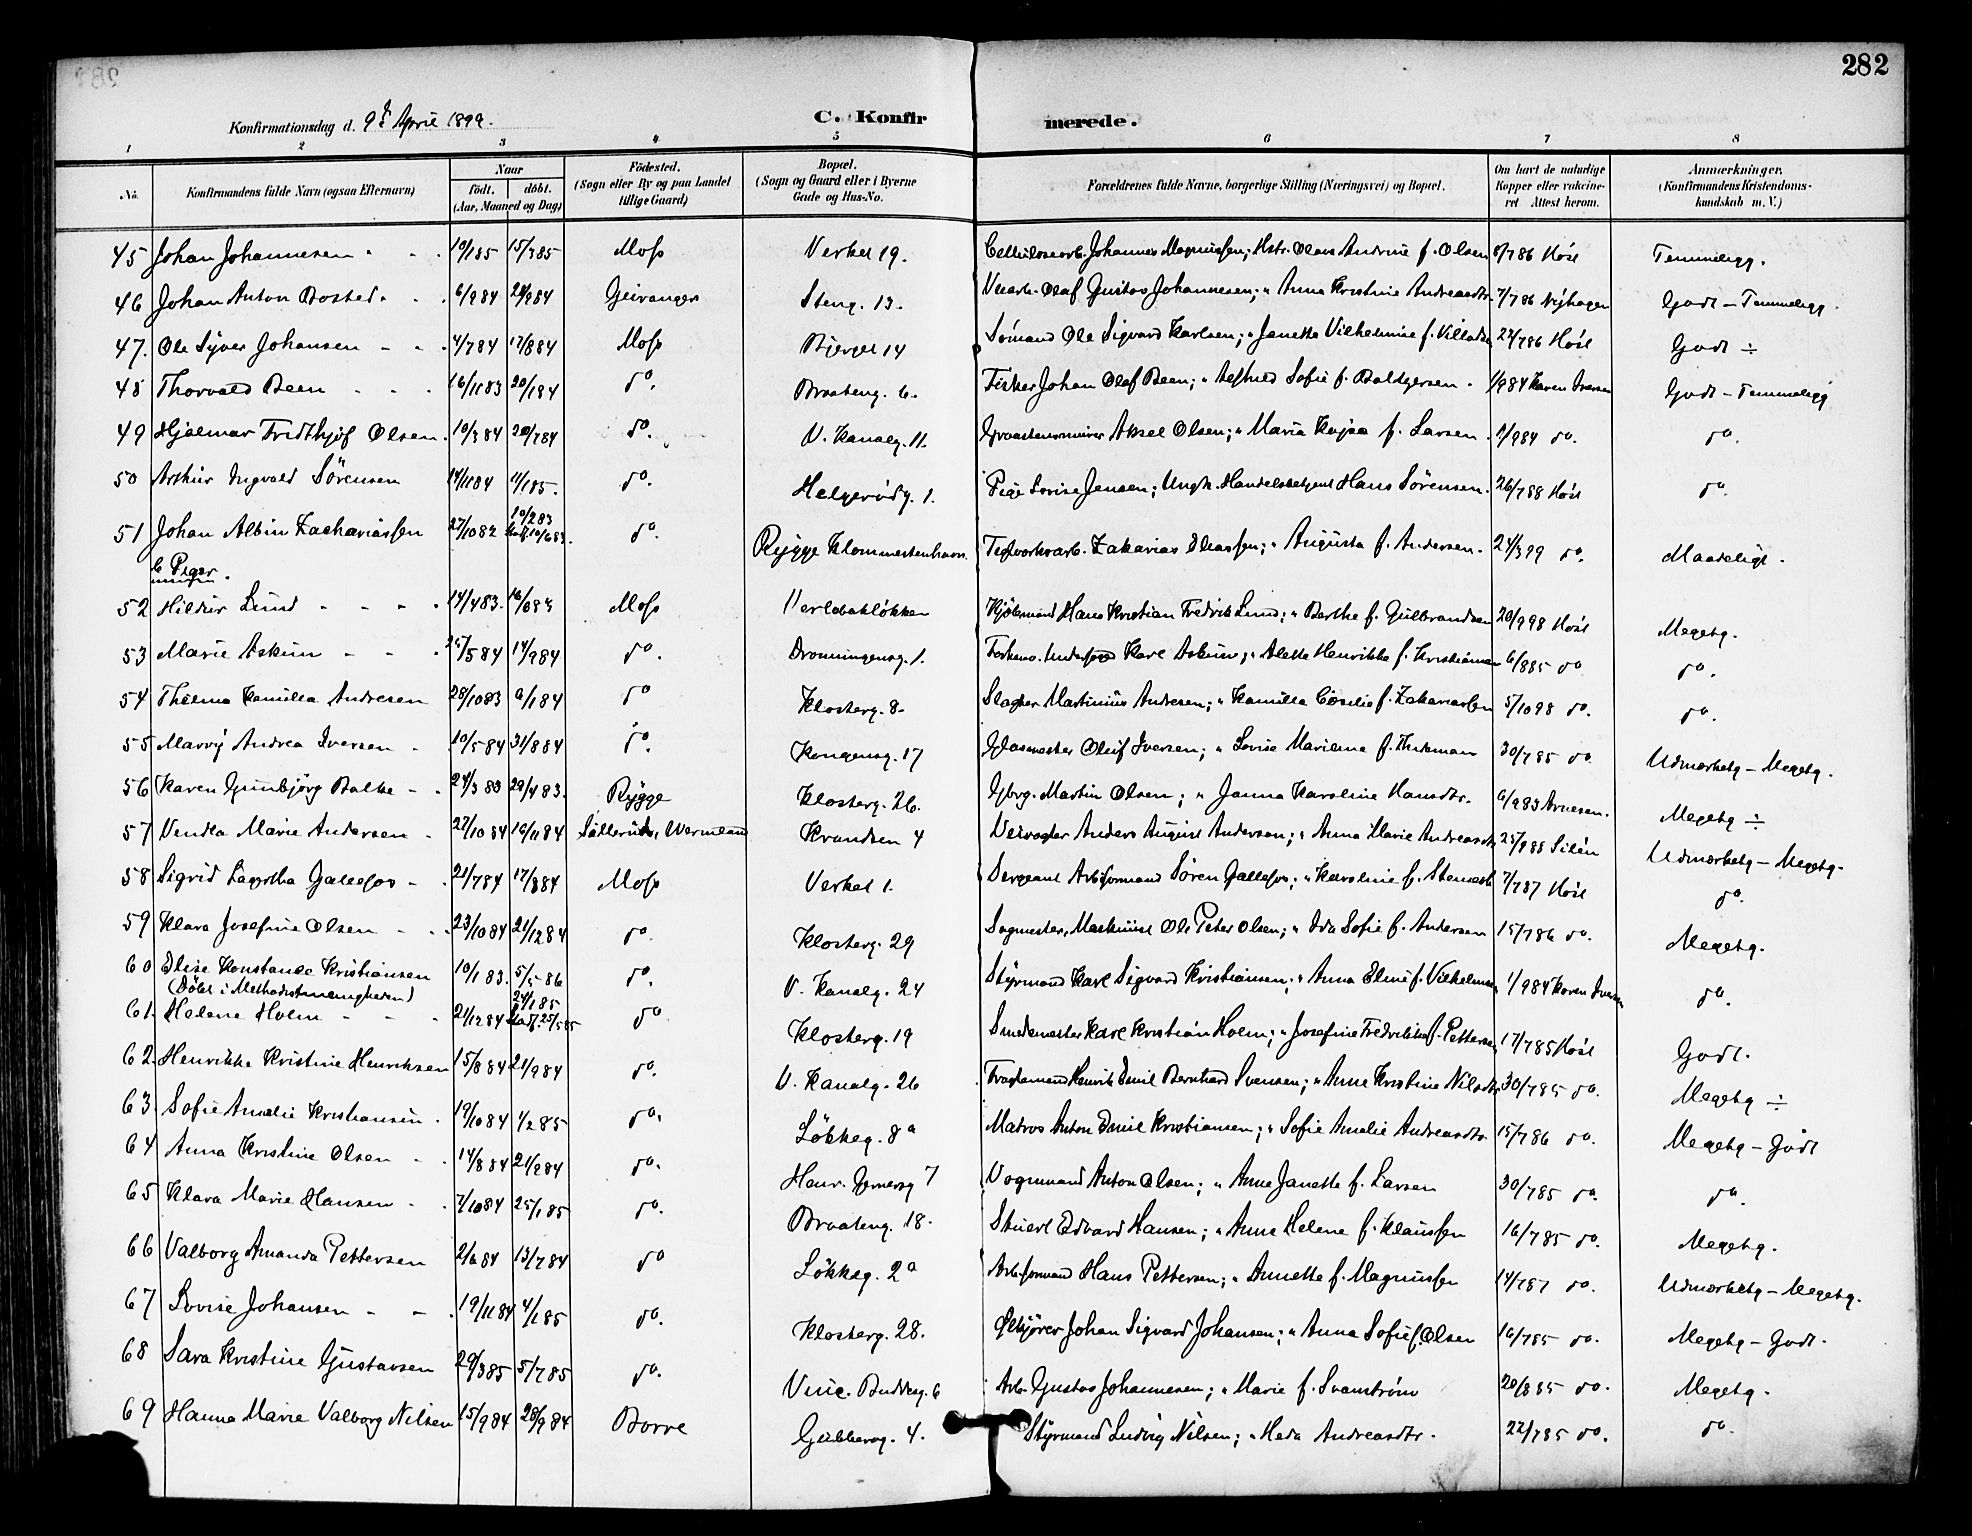 282
Konfirmationsdag d. 9d April 1899.
C. Konfirmerede.
1 2 3 4 5 6 7 8
No. Konfirmandens fulde Navn (ogsaa Efternavn) Naar født. døbt. (Aar, Maaned og Dag) Fødested. (Sogn eller By og paa Landet tillige Gaard) Bopæl. (Sogn og Gaard eller i Byerne Gade og Hus-No. Forældrenes fulde Navne, borgerlige Stilling (Næringsvei) og Bopæl. Om havt de naturlige Kopper eller vakcineret. Attest herom. Anmærkninger. (Konfirmandens Kristendomskundskab m. V.)
45 Johan Johannesen 10/1 85 15/3 85 Moss Verket 19. Cellulosearb. Johannes Magnussen; Hstr. Olava Andrine f. Olsen 8/7 86 Høst Temmeligg.
46 Johan Anton Bosted 6/9 84 Geiranger Steng. 13. Olaf Gustav Johannesen; " Anna Kristine Andreasdtr. 7/7 86 Nyhagen Godt - Temmeligg.
47. Ole Syver Johansen 4/7 84 17/8 84 Moss Bjerget 14 Sömand Ole Sigvard Karlsen; " Janette Vilhelmine f. 22/7 86 Høst Godt ÷
48 Thorvald Been 16/11 83 20/1 84 do. Braateng. 6. Fisker Johan Olaf Been; " Sofie f. Boldgersen. 1/9 84 Karen Iversen Godt - Temmeligg
49 Hjalmar Fridthjof Olsen 10/3 84 20/7 84 do. V. Kanalg. 11. Aksel Olsen; " Maria Kajsa f. Larsen. 1/9 84 do. do.
50 Arthur Ingvald Sörensen 14/11 84 11/1 85. do. Helgerødg. 1. Pige Lovise Jensen; Ungk. Handelsbetjent Hans Sörensen. 26/7 88 Høst do.
51 Johan Albin Zachariassen 27/10 82 10/2 83 Stadf. 10/6 83. do. Rygge Klommestenhavn. Teglverksarb. Zakarias Eliassen; " Augusta f. Andersen. 24/3 99 do. Maadeligt.
b Piger.
52 Hildur Lund 14/4 83. Moss Verlebakløkken Kjöbmand Hans Kristian Fredrik Lund; " Berthe f. Gulbrandsen 20/9 98 Høst Megetg.
53 Marie Askim 25/5 84 14/9 84 do. Dronningensg. 1. Karl Askim; " Alette Henrikke f. Kristiansen 6/8 85 do do.
54 Thelma Kamilla Andresen 28/10 83 6/1 84 do Klosterg. 8. Slagter Martinius Andresen; " Kamilla Cecilie f. Zakariassen 5/10 98 do. do.
55 Marvy Andrea Iversen 10/5 84 31/8 84 do. Kongensg. 17 Glasmester Oluf Iversen; " Lovise Mariane f. 30/7 85 do. Udmærketg - Megetg.
56 Karen Gunbjørg Balke 24/3 83 29/4 83. Rygge Klosterg. 26. Gbrg. Martin Olsen; " Janna Karoline Hansdtr. 6/9 83 Arnesen. Megetg ÷
57 Vendla Marie Andersen 27/10 84 16/11 84 Wermland Kransen 4 Anders August Andersen; " Anna Marie Andreasdtr. 25/9 88 Silén Udmærketg - Megetg.
58 Sigrid Lagertha Gallefos 21/7 84 17/8 84 Moss Verket 1. Sergeant Arbformand Sören Gallefos; " Karoline f. 7/7 87 Høst do.
59 Klara Josefine Olsen 23/10 84 21/12 84 do. Klosterg. 29 Sagmester, Maskinist Ole Peter Olsen; " Ida Sofie f. Andersen 15/7 86 do. Megetg.
60 Elise Konstanse Kristiansen 10/1 83. 5/5 86 do. V. Kanalg. 24 Styrmand Karl Sigvard Kristiansen; " Anna Eline f. Vilhelmsen 1/9 84 Karen Iversen do.
(Døbt i Methodistmenigheden)
61. Helene Holm 21/12 84 24/1 85 Stadf. 25/5 85 do Klosterg. 19 Smedemester Karl Kristian Holm; " Josefine Fredrikke f. Pettersen 17/7 85 Høst Godt.
62 Henrikke Kristine Henriksen 15/8 84 21/9 84 do. V. Kanalg. 26 Henrik Emil Bernhard Svensen; " Anne Kristine Nilsdtr. 30/7 85 do. Megetg ÷
63. Sofie Amalie Kristiansen. 19/10 84 1/2 85 do. Løkkeg. 8a Matros Anton Emil Kristiansen; " Sofie Amalie Andreasdtr. 15/7 86 do. Megetg - Godt
64 Anna Kristine Olsen 14/8 84 21/9 84 do. Henr. Gernersg 7 Vognmand Anton Olsen; " Anne Janette f. Larsen 30/7 85 do. do.
65 Klara Marie Hansen 7/10 84 25/1 85 do. Braateng. 18. Stuert Edvard Hansen; " Anne Helene f. Klaussen 16/7 85 do. Megetg.
66 Valborg Amanda Pettersen 2/6 84 13/7 84 do Løkkeg. 2a Arbformand Hans Pettersen; " Annette f. Magnussen 14/7 87 do. Udmærketg - Megetg.
67 Lovise Johansen 19/11 84 4/1 85 do. Klosterg. 28. Johan Sigvard Johansen; " Anna Sofie f. Olsen 16/7 85 do. Megetg - Godt.
68 Sara Kristine Gustavsen 29/3 85 5/7 85 do. Vinc. Buddesg. 6 Arb. Gustav Johannesen; " Marie f. Svanstrøm 20/8 85 do. Megetg.
69 Hanna Marie Valborg Nilsen 15/9 84 28/9 84 Borre Gubberog. 4. Styrmand Ludvig Nilsen; " Heda Andreasdtr. 22/7 85 do. do.